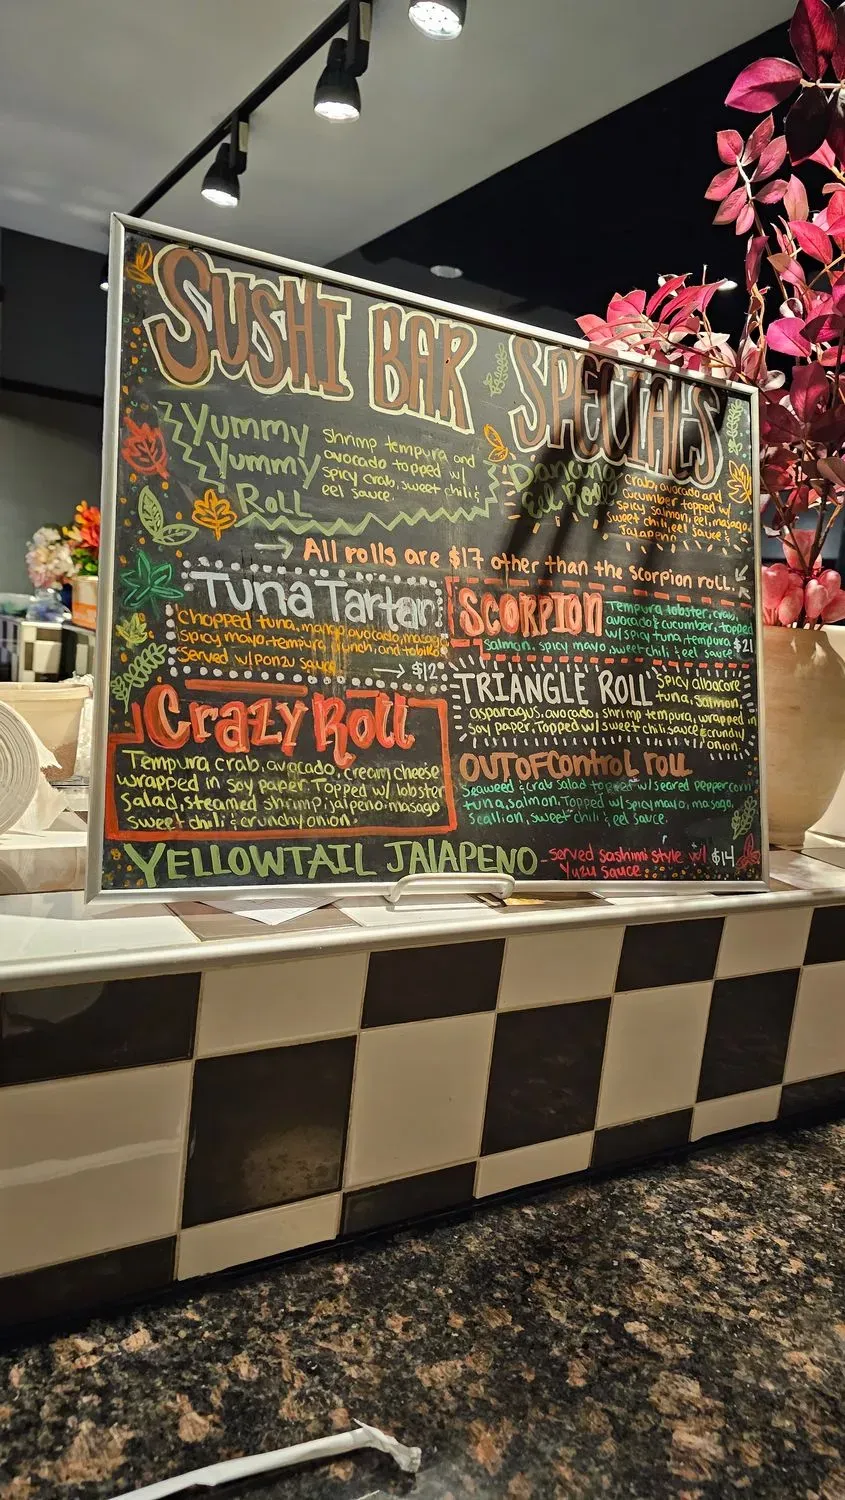 SUSHI BAR SPECIALS
Yummy
Yummy
Roll
shrimp tempura and
avocado topped w/
spicy crab, sweet chili &
eel sauce.
Dancing
Eel Roll
crab, avocado and
cucumber topped w/
spicy salmon, eel, masago,
sweet chili, eel sauce &
Jalapeno
→ All rolls are $17 other than the scorpion roll.
Tuna Tartar
chopped tuna, mango, avocado, masago,
spicy mayo, tempura crunch, and tobiko
served w/ ponzu sauce
→ $12
SCORPION
Tempura lobster, crab,
avocado & cucumber, topped
w/ spicy tuna, tempura, $21
salmon, spicy mayo, sweet chili & eel sauce
Crazy Roll
Tempura crab, avocado, cream cheese
wrapped in soy paper. Topped w/ lobster
Salad, steamed shrimp, jalpeno, masago
sweet chili & crunchy onion.
TRIANGLE ROLL
spicy albacore
tuna, salmon,
asparagus, avocado, shrimp tempura, wrapped in
soy paper. Topped w/ sweet chili sauce & crunchy
onion.
OUT OF Control roll
Seaweed & crab salad topped w/ seared peppercorn
tuna, salmon. Topped w/ spicy mayo, masago,
scallion, sweet chili & eel sauce.
YELLOWTAIL JALAPENO
-served sashimi style w/ $14
Yuzu sauce.